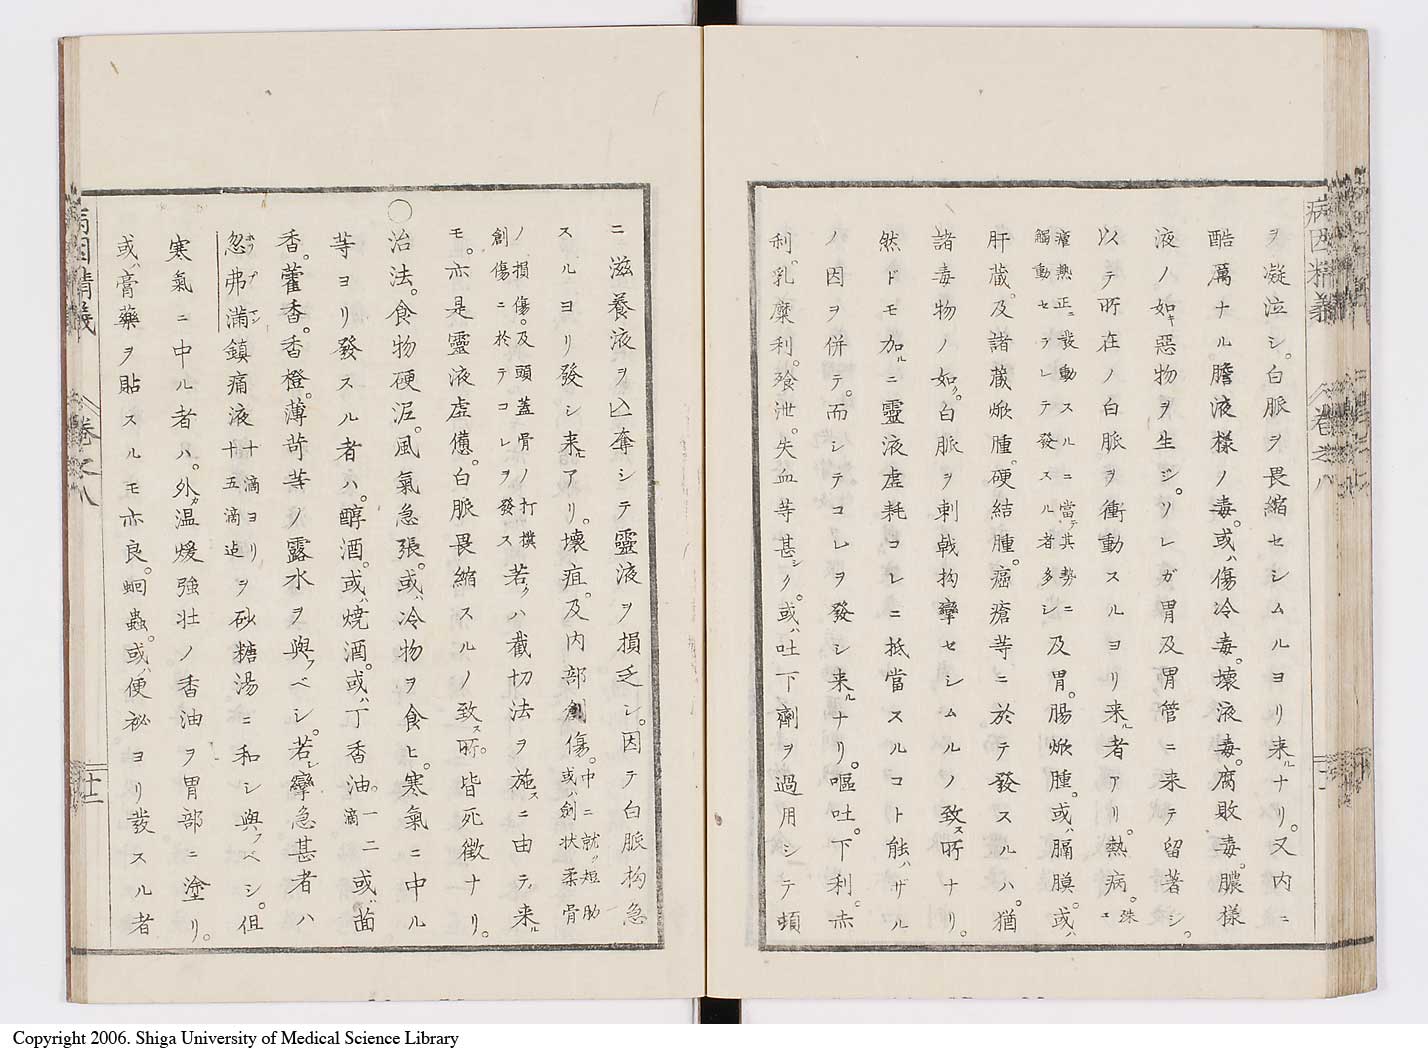 病因精義 卷之八
ヲ凝泣シ。白脈ヲ畏縮セシムルヨリ来ルナリ。又内ニ
酷厲ナル。膽液様ノ毒。或ハ傷冷毒。壊液毒。腐敗毒。膿様
液ノ如キ惡物ヲ生ジ。ソレガ胃及胃管ニ来テ留著シ。
以テ所在ノ白脈ヲ衝動スルヨリ来ル者アリ。熱病。殊ニ
瘧熱正ニ發動スルニ當テ其勢ニ
觸動セラレテ發スル者多シ
及胃。腸焮腫。或ハ膈膜。或ハ
肝蔵。及諸蔵焮腫。硬結腫。癌瘡等ニ於テ發スルハ。猶
諸毒物ノ如ク。白脈ヲ刺戟拘攣セシムルノ致ス所ナリ。
然ドモ加ルニ靈液虚耗コレニ抵當スルコト能ハザル
ノ因ヲ併テ。而シテコレヲ發シ来ルナリ。嘔吐。下利。赤
利。乳糜利。飱泄。失血等甚シク。或ハ吐下劑ヲ過用シテ頓
ニ滋養液ヲ亾奪シテ靈液ヲ損乏シ。因テ白脈拘急
スルヨリ發シ来ルアリ。壊疽。及内部創傷。中ニ就ク短肋
或ハ創状柔骨
ノ損傷。及頭蓋骨ノ打撲
創傷ニ於テコレヲ發ス
若クハ截切法ヲ施スニ由テ来ル
モ。亦是靈液虚憊。白脈畏縮スルノ致ス所。皆死徴ナリ。
○治法。食物硬泥。風氣急張。或ハ冷物ヲ食ヒ。寒氣ニ中ル
等ヨリ發スル者ハ。醇酒。或ハ焼酒。或ハ丁香油。一二滴
或ハ茴
香。藿香。香橙。薄苛等ノ露水ヲ與フベシ。若シ攣急甚者ハ
忽弗満鎮痛液十滴ヨリ
十五滴迠
ヲ砂糖湯ニ和シ與フベシ。但
寒氣ニ中ル者ハ。外カ温煖強壮ノ香油ヲ胃部ニ塗リ。
或ハ膏藥ヲ貼スルモ亦良。蛔蟲。或ハ便祕ヨリ發スル者
病因精義 卷之八 十二
Copyright 2006. Shiga University of Medical Science Library